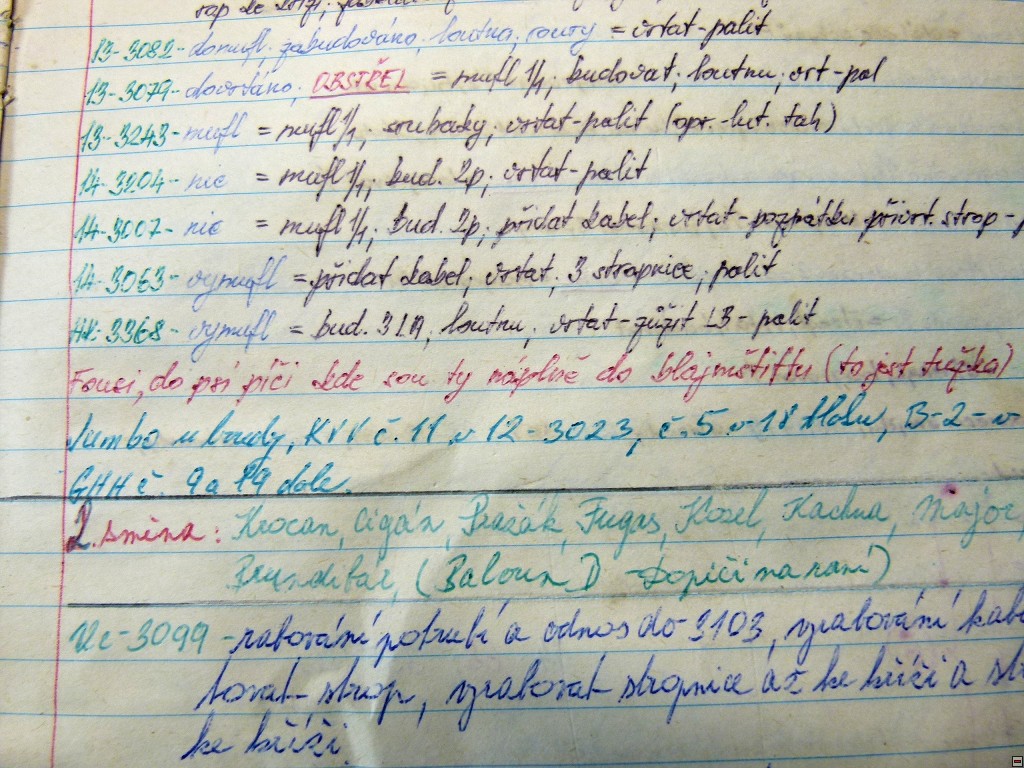 13-3082- domufl. zabudováno, loutna, routy = vrtat-palit
13-3079- dovrtáno, OBSTŘEL = mufl 1/1, budovat, loutnu, vrt-pal
13-3243- mufl = mufl 1/1, srubovky, vrtat-palit (opr.-lut. tah)
14-3204- nic = mufl 1/1, bud. 2p, vrtat-palit
14-3007- nic = mufl 1/1, bud. 2p, přidat kabel, vrtat-pozpátku přivrt. strop-
14-3063- vymufl = přidat kabel, vrtat, 3 stropnice, palit
3368- vymufl = bud. 3LM, loutnu, vrtat-zúžit LB- palit
Fousi, do psí píči kde sou ty náplně do blajmštiftu (to jest tužka)
Jumbo u boudy, KVV č.11 v 12-3023, č.5 v-18 hlobu, B-2-v
GHH č. 9 a 19 dole.
2. směna: Krocan, Cigán, Pražák, Fugas, Kozel, Kachna, Major,
Brundibár, (Baloun D -Dopíči na raní)
3099 -rabování potrubí a odnos do 3103, vyrabování kab
tovat strop, vyrabovat stropnice až ke kříži a st
ke kříži.